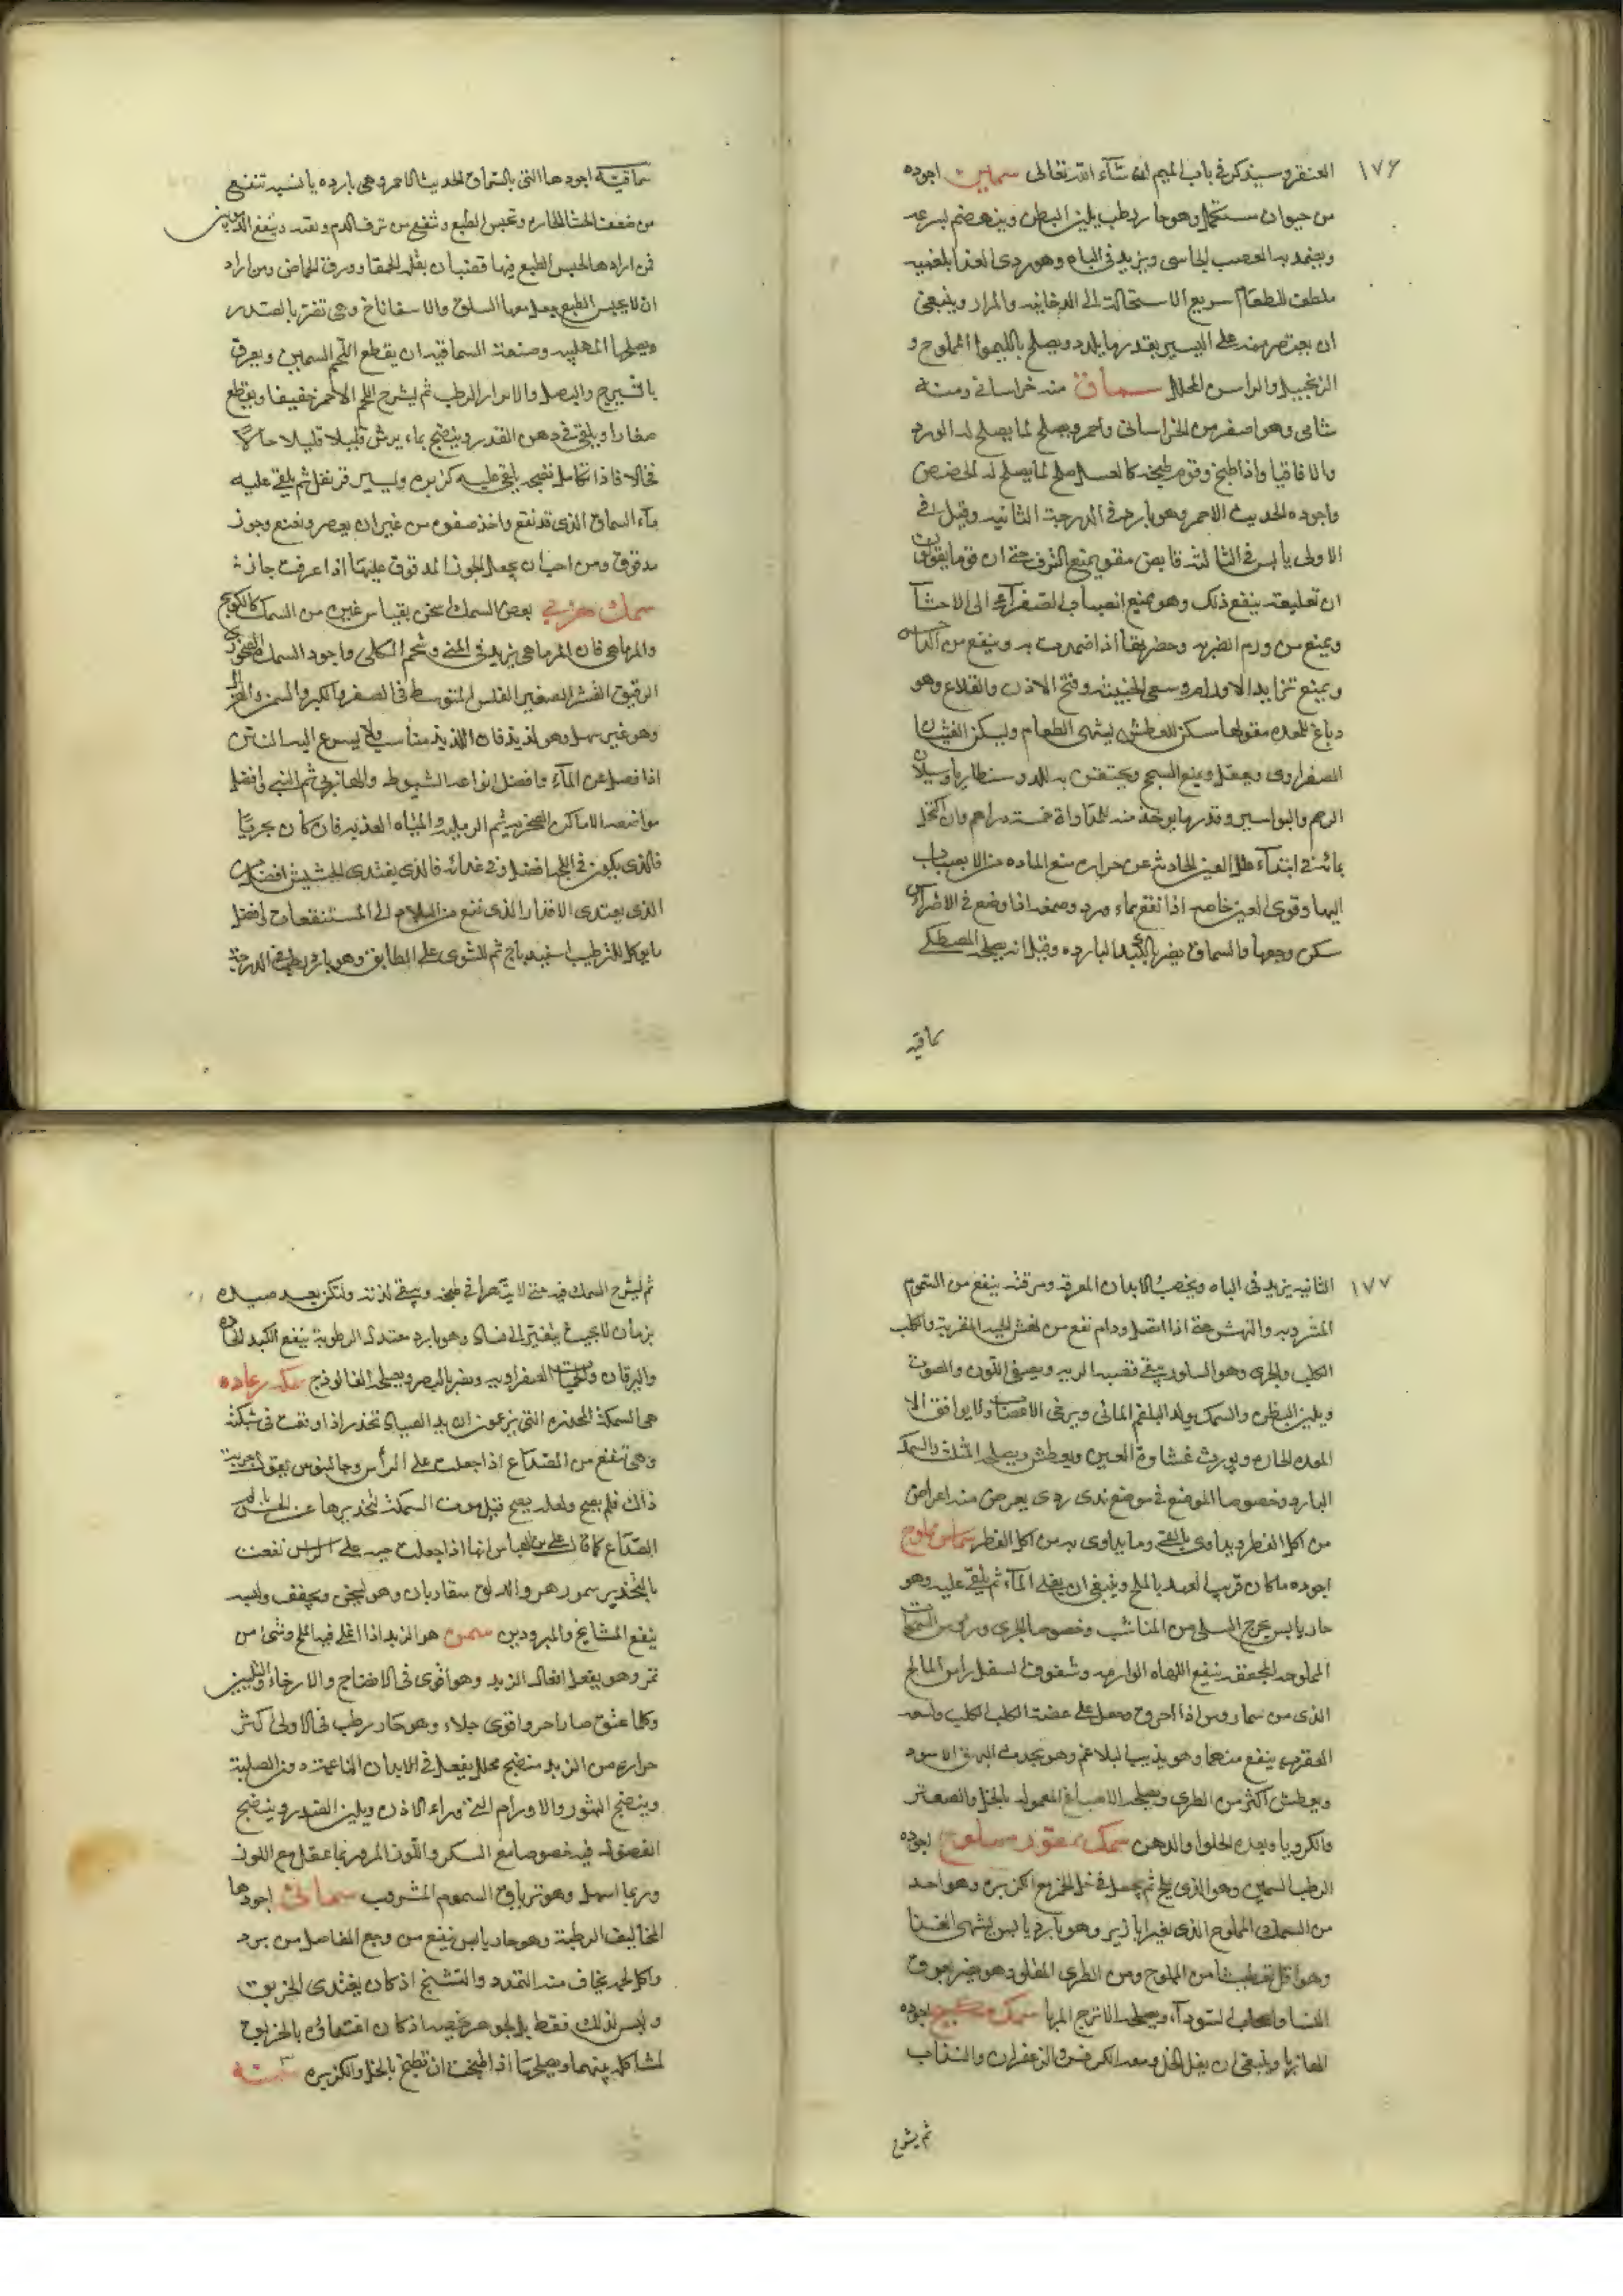 ١٧٦
العنقر وسيذكر في باب الميم ان شآء الله تعالى سمين اجوده
من حيوان مستكمل وهو حار رطب يلين البطن وينهضم بسرعه
ويضمد به العصب الجاسى ويزيد في الباه وهو ردى الغذا
ملطف للطعام سريع الاستحالة الى الدخانيه والمرار وينبغى
ان يقتصر منه على اليسير بقدر ما يلذذ ويصلح بالليموا المملوح و
الزنجبيل والراسن المخلل سماق منه خراسانى ومنه
شامى وهو اصغر من الخراسانى واحمر ويصلح لما يصلح له الورد
والاقاقيا واذا طبخ وقوم طبيخه كالعسل صلح لما يصلح له الحضض
واجوده الحديث الاحمر وهو بارد في الدرجة الثانيه وقيل في
الاولى يابس في الثالثه قابض مقوى يمنع النزف حتى ان قوما يقولون
ان تعليقه ينفع ذلك وهو يمنع انصباب الصفرآء الى الاحشآ
ويمنع من ورم الضربه وخضرتها اذا ضمدت به وينفع من الداحس
ويمنع تزايد الاورام وسعى الخبيثه وقيح الاذن والقلاع وهو
دباغ للمعده مقو لها مسكن للعطش يشهى الطعام ويسكن الغثيان
الصفراوى ويعقل ويمنع السحج ويحتقن به للدوسنطاريا وسيلان
الرحم والبواسير وقدر ما يوخذ منه للمداواة خمسة دراهم وان اكتحل
بمائه في ابتداء علل العين الحادثه عن حراره منع الماده من الانصباب
اليها وقوى العين خاصه اذا نقع بماء ورد وصمغه اذا وضع في الاضراس
سكن وجعها والسماق يضر بالكبد البارده وقيل انه يصلحه المصطكى
ماقيه
سماقية اجودها التى بالسماق الحديث الاحمر وهى بارده يابسه تنفع
من ضعف الحشا الحاره وتحبس الطبع وتنفع من نزف الدم ونفثه وينفع
فمن ارادها لحبس الطبع فيها قضبان بقله الحمقا وورق الحماض ومن اراد
ان لا يحبس الطبع يجعل معها السلق والاسفاناخ وهى تضر بالصدر
ويصلحها المهلبيه وصنعة السماقيه ان يقطع اللحم السمين ويعرق
بالشيرج والبصل والابزار الرطب ثم يشرح اللحم الاحمر خفيفا ويقطع
صغارا ويلقى في دهن القدر وينضج بماء يرش قليلا قليلا حالاً
فحالا فاذا تكامل نضجه يلقى عليه كزبره ويسير قرنفل ثم يلقى عليه
مآء السماق الذى قد نقع واخذ صفوه من غير ان يعصر ونعنع وجوز
مدقوق ومن احب ان يجعل الجوز المدقوق عليها اذا غرفت جاز
سمك بعض السمك اسخن بقياس غيره من السمك كالكوسج
والمرماهى فان المرماهى يزيد في المنى وشحم الكلى واجود السمك
الرقيق القشر الصغير الفلس المتوسط في الصغر والكبر والسمن والهزال
وهو غير سهل وهو لذيذ فان اللذيذ مناسب ولا يسرع اليه النتن
اذا فصل عن المآء وافضل انواعه الشبوط والهازبى ثم البنى وافضل
مواضعه الاماكن الصخريه ثم الرمليه والمياه العذبه فان كان بحريا
فالذى يكون في اللجه افضل وفى غذائه فالذى يغتذى الحشيش افضل من
الذى يغتذى الاقذار الذى تقع من البلاد الى المستنقعات وافضل
ما يوكل للترطيب اسفيدباج ثم المشوى على الطابق وهو بارد رطب في الدرجة
١٧٧
الثانيه يزيد في الباه ويخصب الابدان ومرقته ينفع من السموم
المشروبه والنهش حتى اذا اتصل ودام نفع من نهش الحيه المقرنة والكلب
الكلب والجرى وهو السلور ينقى قصبه الريه ويصفى اللون والصوت
ويلين البطن والسمك يولد البلغم المائى ويرخى الاعصاب ولا يوافق الا
المعده الحاره ويورث غشاوة العين ويعطش ويصلحه المثلث والسمك
البارد وخصوصا الموضع في موضع ندى ردى يعرض منه اعراض
من اكل الفطر ويداوى بالقئ وما يداوى به من اكل الفطر سماس مملوح
اجوده ما كان قريب العهد بالملح وينبغى ان يغلى المآء ثم يلقى عليه وهو
حار يابس يخرج السلى من المناشب وخصوصا الجرى
المملوحه المجففه ينفع اللهاه الوارمه وشقوق اسفل راس المالح
الذى من سماروس اذا احرق وجعل على عضة الكلب الكلب ولسعه
العقرب ينفع منهما وهو يذيب البلاغم وهو يحدث البهق الاسود
ويعطش اكثر من الطرى ويصلحه الاصباغ المعموله بالخل والصعتر
والكرويا وبعده الحلوا والدهن سمك ممقور مملوح اجوده
الرطب السمين وهو الذى يملح ثم يجعل في خل الخمر مع الكزبره وهو احد
من السمك المملوح الذى بغير ابازير وهو بارد يابس يشهى الغذا
وهو اقل تعطيشا من المملوح ومن الطرى المقلو وهو يضر
النسا واصحاب السودآء ويصلحه الاترج المربا سمك اجوده
الهازبا وينبغى ان يغلى الخل ومعه الكرفس والزعفران والسذاب
ثم يشرح
ثم يشرح السمك فيه حتى لا يتهرا في طبخه ويبقى لذته ولتكن بعد صيده
بزمان لا بحيث يتغير الى فساد وهو بارد معتدل الرطوبة ينفع الكبد الحاره
واليرقان والحميات الصفراويه ويضر بالبصر ويصلحه الفالوذج سمكه رعاده
هى السمكة المخدره التى يزعمون ان يد الصياد تخدر اذا وقعت في شبكته
وهى تنفع من الصداع اذا جعلت على الرأس وجالينوس يقول جربت
ذلك فلم يصح ولعله يصح قبل موت السمكة لتخديرها عن الحس
الصداع كما قال على بن العباس انها اذا جعلت حيه على الراس نفعت
بالتخدير سمور هو والدلق متقاربان وهو يسخن ويجفف ولبسه
ينفع المشايخ والمبرودين سمن هو الزبد اذا اغلى فيه الملح وشئ من
تمر وهو يفعل افعال الزبد وهو اقوى في الانضاج والارخاء والتليين
وكلما عتق صار احر واقوى جلاء وهو حار رطب في الاولى اكثر
حراره من الزبد منضج محلل يفعل في الابدان الناعمة دون الصلبة
وينضج البثور والاورام التى وراء الاذن ويلين الصدر وينضج
الفضول فيه خصوصا مع السكر واللوز المر وربما عقل مع اللوز
وربما اسهل وهو ترياق السموم المشروب سمانى اجودها
المخاليف الرطبة وهو حار يابس ينفع من وجع المفاصل من برد
واكل لحمه يخاف منه التمدد والتشنج اذ كان يغتذى الخربق
وليس لذلك فقط بل لجوهر يخصه اذ كان اغتذاؤه بالخربق
لمشاكله بينهما ويصلحها اذا طبخت ان تطبخ بالخل والكزبره